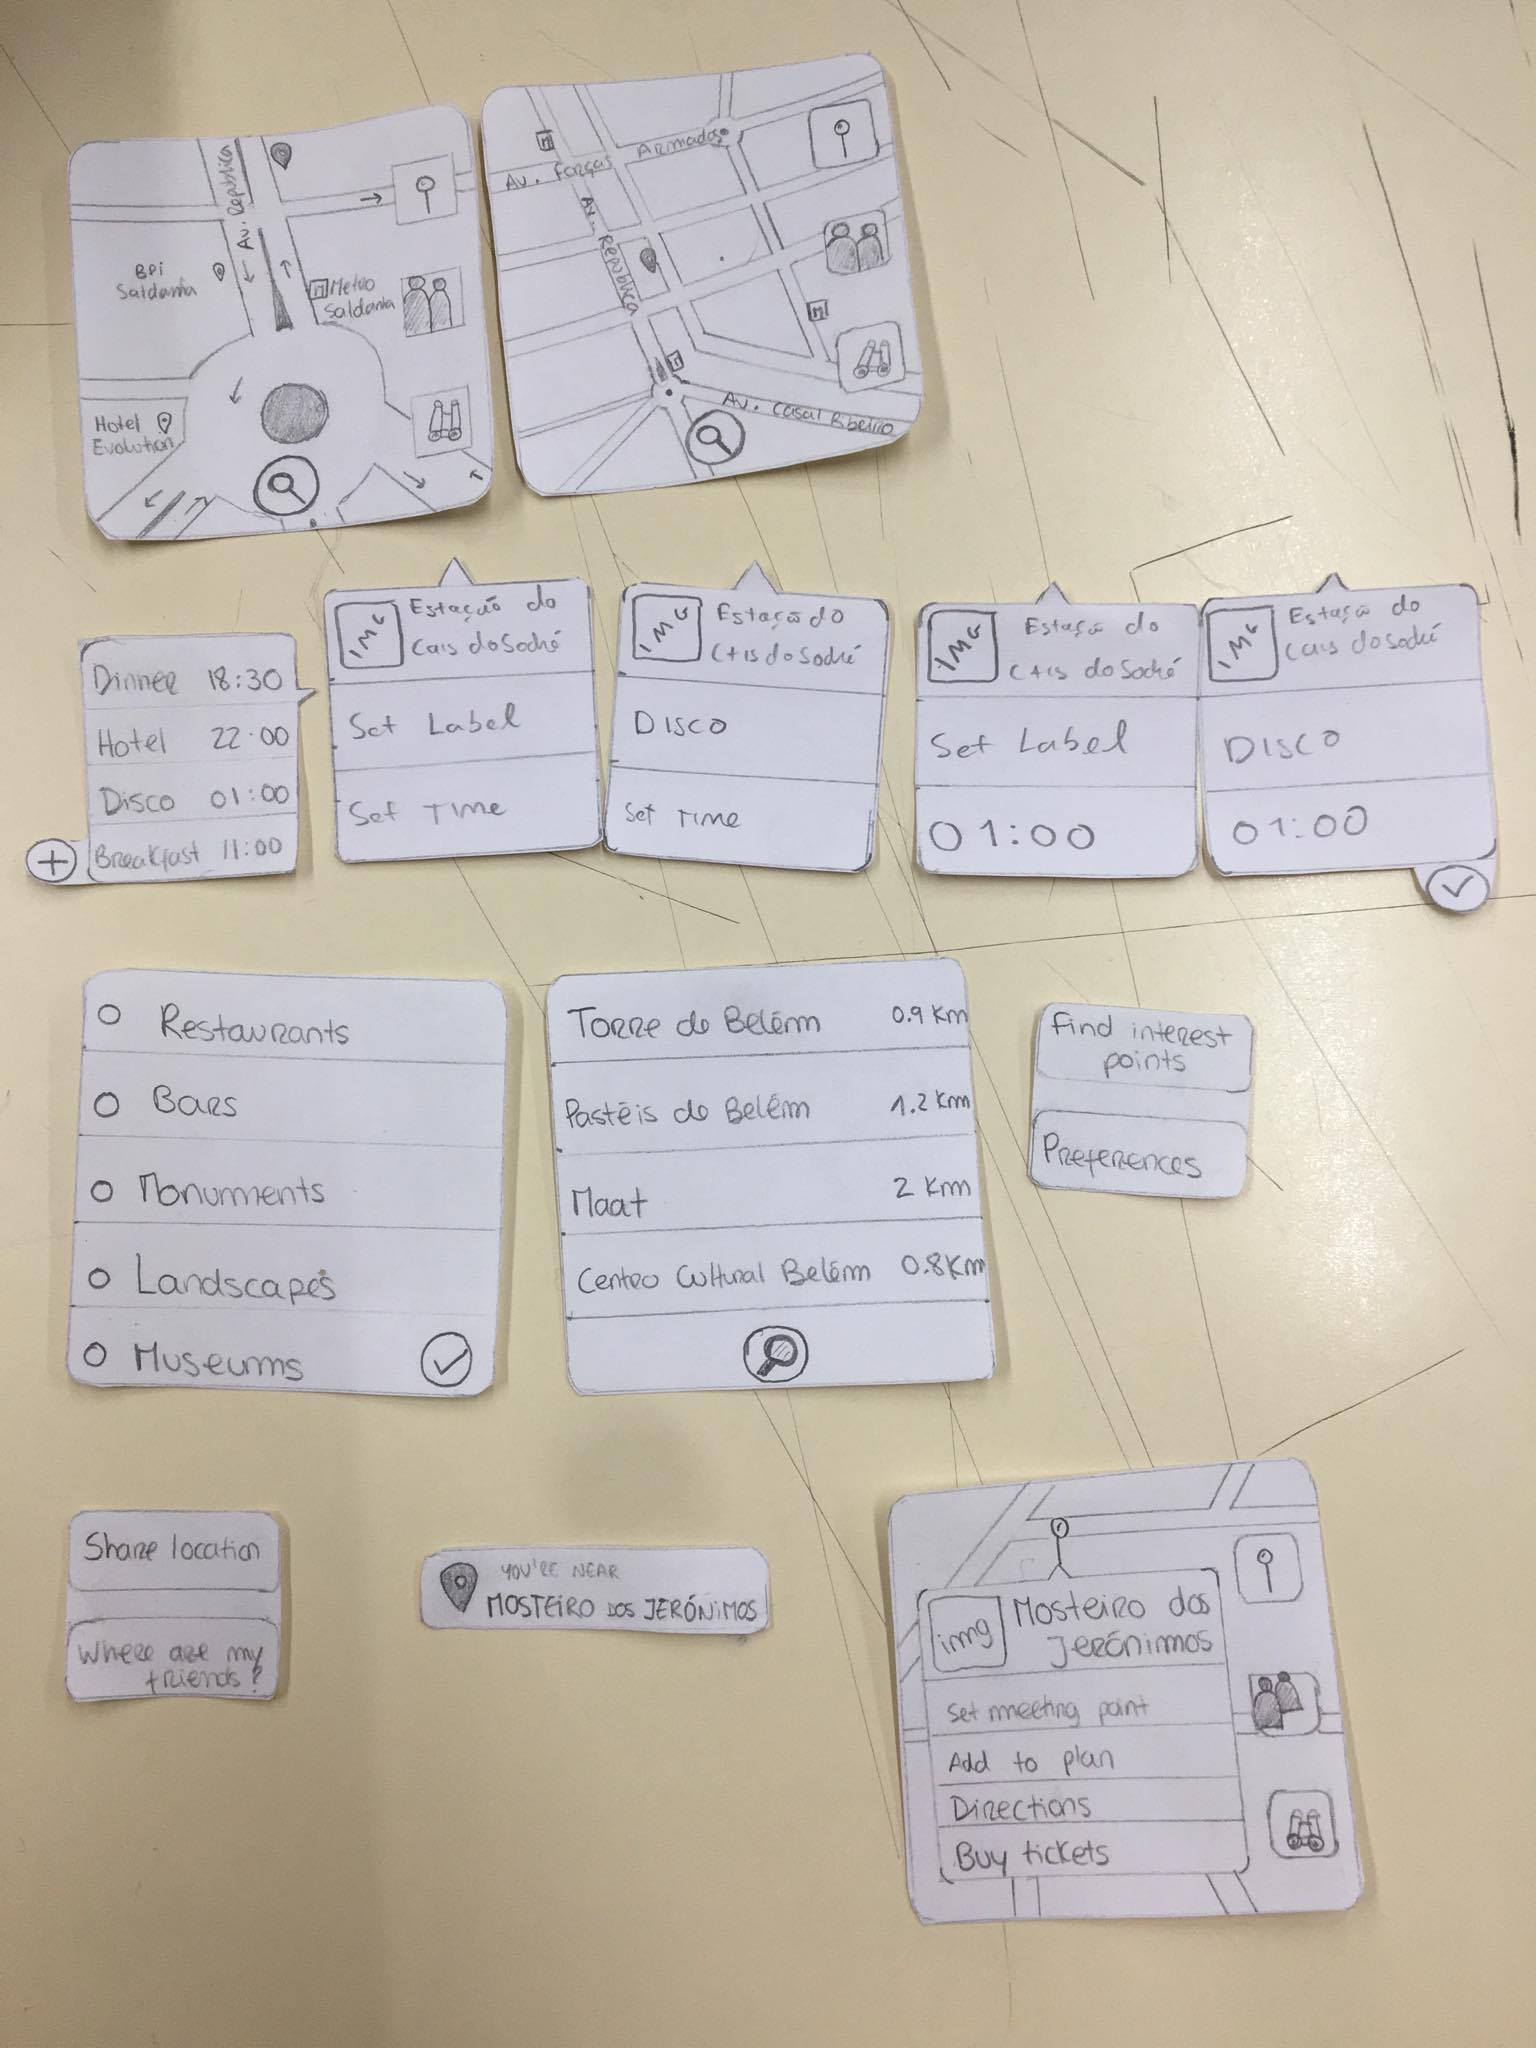 Av. República
BPi
Saldanha
M Metro
Saldanha
Hotel
Evolution
M
Av. Forças Armadas
Av. República
M
M
Av. Casal Ribeiro
Dinner 18:30
Hotel 22:00
Disco 01:00
Breakfast 11:00
IMG
Estação do
Cais do Sodré
Set Label
Set Time
IMG
Estação do
Cais do Sodré
Disco
Set Time
IMG
Estação do
Cais do Sodré
Set Label
01:00
IMG
Estação do
Cais do Sodré
Disco
01:00
Restaurants
Bars
Monuments
Landscapes
Museums
Torre de Belém 0.9 Km
Pastéis de Belém 1.2 Km
Maat 2 Km
Centro Cultural Belém 0.8 Km
Find interest
points
Preferences
Share location
Where are my
friends?
YOU'RE NEAR
MOSTEIRO DOS JERÓNIMOS
img
Mosteiro dos
Jerónimos
Set meeting point
Add to plan
Directions
Buy tickets